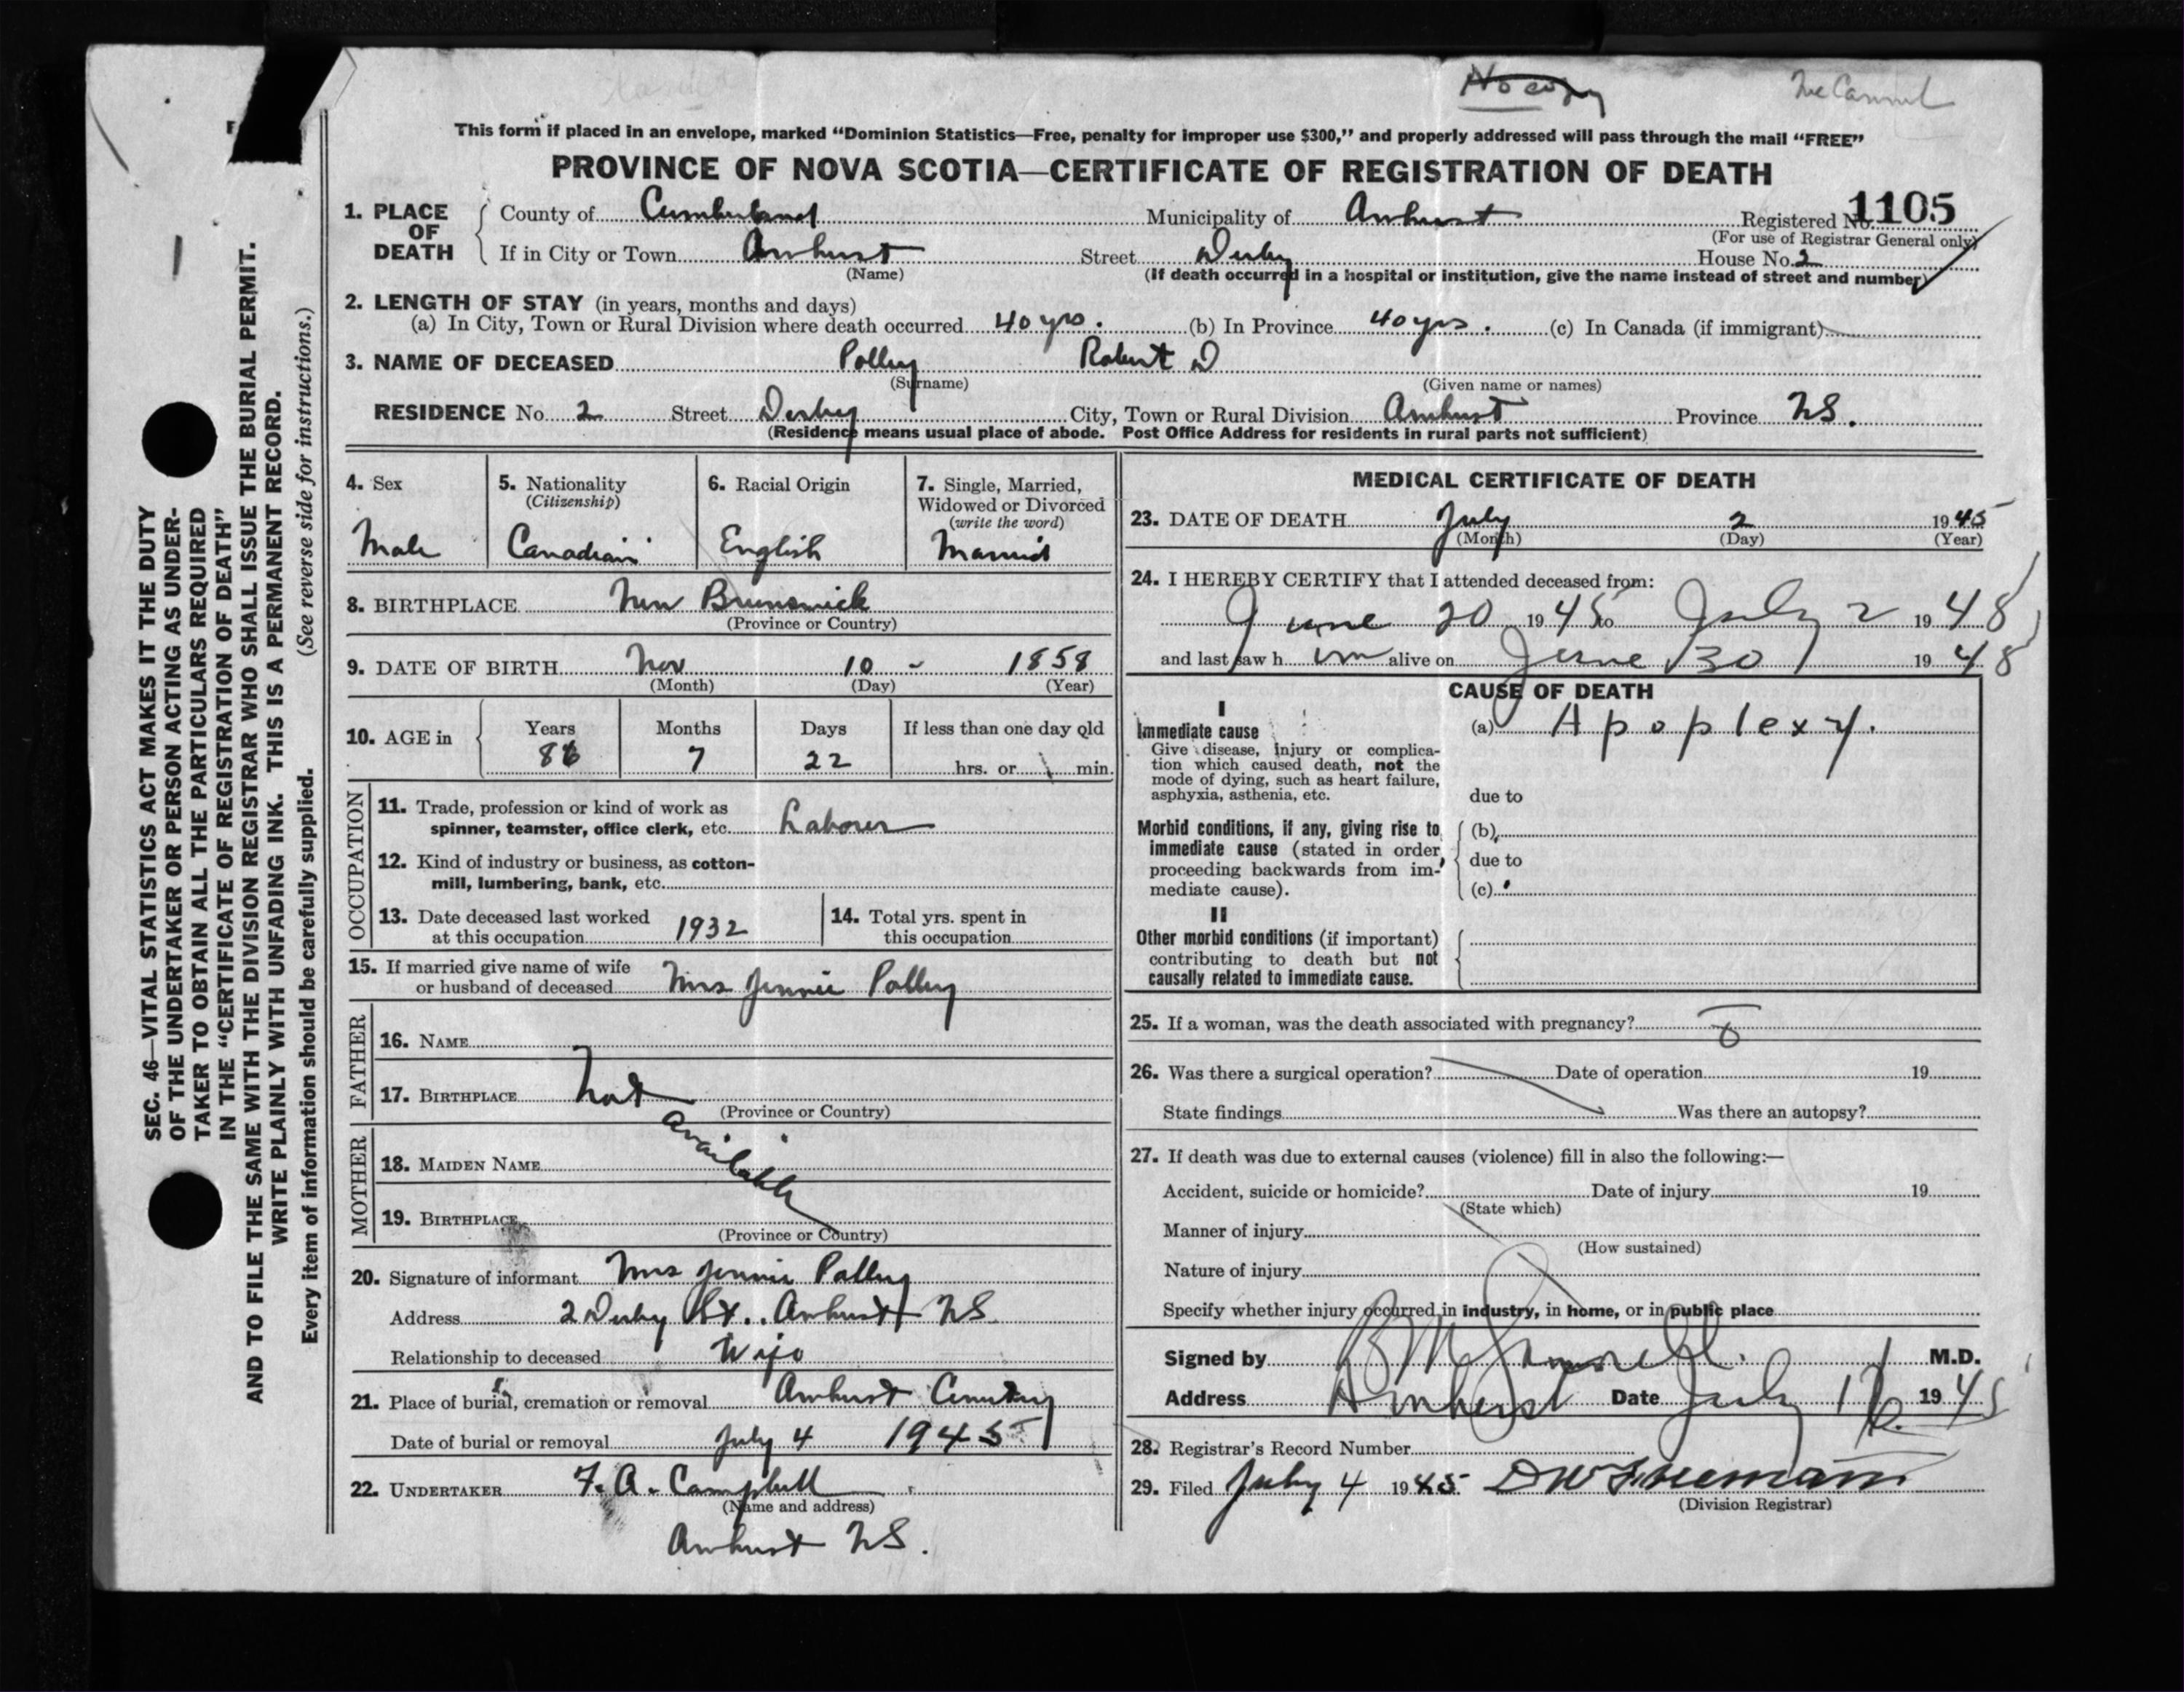 No copy
This form if placed in an envelope, marked "Dominion Statistics—Free, penalty for improper use $300," and properly addressed will pass through the mail "FREE"
PROVINCE OF NOVA SCOTIA—CERTIFICATE OF REGISTRATION OF DEATH
1. PLACE OF DEATH County of Cumberland Municipality of Amherst Registered No. 1105
(For use of Registrar General only)
If in City or Town Amherst Street Derby House No. 2
(Name) (If death occurred in a hospital or institution, give the name instead of street and number)
2. LENGTH OF STAY (in years, months and days)
(a) In City, Town or Rural Division where death occurred 40 yrs. (b) In Province 40 yrs. (c) In Canada (if immigrant)
3. NAME OF DECEASED Polley Robert D
(Surname) (Given name or names)
RESIDENCE No 2 Street Derby City, Town or Rural Division Amherst Province NS.
(Residence means usual place of abode. Post Office Address for residents in rural parts not sufficient)
4. Sex
Male
5. Nationality
(Citizenship)
Canadian
6. Racial Origin
English
7. Single, Married,
Widowed or Divorced
(write the word)
Married
8. BIRTHPLACE New Brunswick
(Province or Country)
9. DATE OF BIRTH Nov 10 - 1858
(Month) (Day) (Year)
10. AGE in Years Months Days If less than one day old
86 7 22 hrs. or min.
OCCUPATION
11. Trade, profession or kind of work as
spinner, teamster, office clerk, etc. Laborer
12. Kind of industry or business, as cotton-
mill, lumbering, bank, etc.
13. Date deceased last worked
at this occupation 1932
14. Total yrs. spent in
this occupation
15. If married give name of wife
or husband of deceased Mrs Jennie Polley
FATHER
16. NAME
17. BIRTHPLACE Not
(Province or Country)
available
MOTHER
18. MAIDEN NAME
19. BIRTHPLACE
(Province or Country)
20. Signature of informant Mrs Jennie Polley
Address 2 Derby St.. Amherst NS
Relationship to deceased Wife
21. Place of burial, cremation or removal Amherst Cemetery
Date of burial or removal July 4 1945
22. UNDERTAKER F. A. Campbell
(Name and address)
Amherst NS.
MEDICAL CERTIFICATE OF DEATH
23. DATE OF DEATH July 2 1945
(Month) (Day) (Year)
24. I HEREBY CERTIFY that I attended deceased from:
June 20 1945 to July 2 1945
and last saw h im alive on June 30 1945
CAUSE OF DEATH
I
Immediate cause
Give disease, injury or complica-
tion which caused death, not the
mode of dying, such as heart failure,
asphyxia, asthenia, etc.
(a) Apoplexy.
due to
Morbid conditions, if any, giving rise to
immediate cause (stated in order,
proceeding backwards from im-
mediate cause).
(b)
due to
(c)
II
Other morbid conditions (if important)
contributing to death but not
causally related to immediate cause.
25. If a woman, was the death associated with pregnancy?
26. Was there a surgical operation? Date of operation 19
State findings Was there an autopsy?
27. If death was due to external causes (violence) fill in also the following:—
Accident, suicide or homicide? Date of injury 19
(State which)
Manner of injury
(How sustained)
Nature of injury
Specify whether injury occurred in industry, in home, or in public place
Signed by M.D.
Address Amherst Date July 1945
28. Registrar's Record Number
29. Filed July 4 1945
(Division Registrar)
SEC. 46—VITAL STATISTICS ACT MAKES IT THE DUTY
OF THE UNDERTAKER OR PERSON ACTING AS UNDER-
TAKER TO OBTAIN ALL THE PARTICULARS REQUIRED
IN THE "CERTIFICATE OF REGISTRATION OF DEATH"
AND TO FILE THE SAME WITH THE DIVISION REGISTRAR WHO SHALL ISSUE THE BURIAL PERMIT.
WRITE PLAINLY WITH UNFADING INK. THIS IS A PERMANENT RECORD.
Every item of information should be carefully supplied. (See reverse side for instructions.)